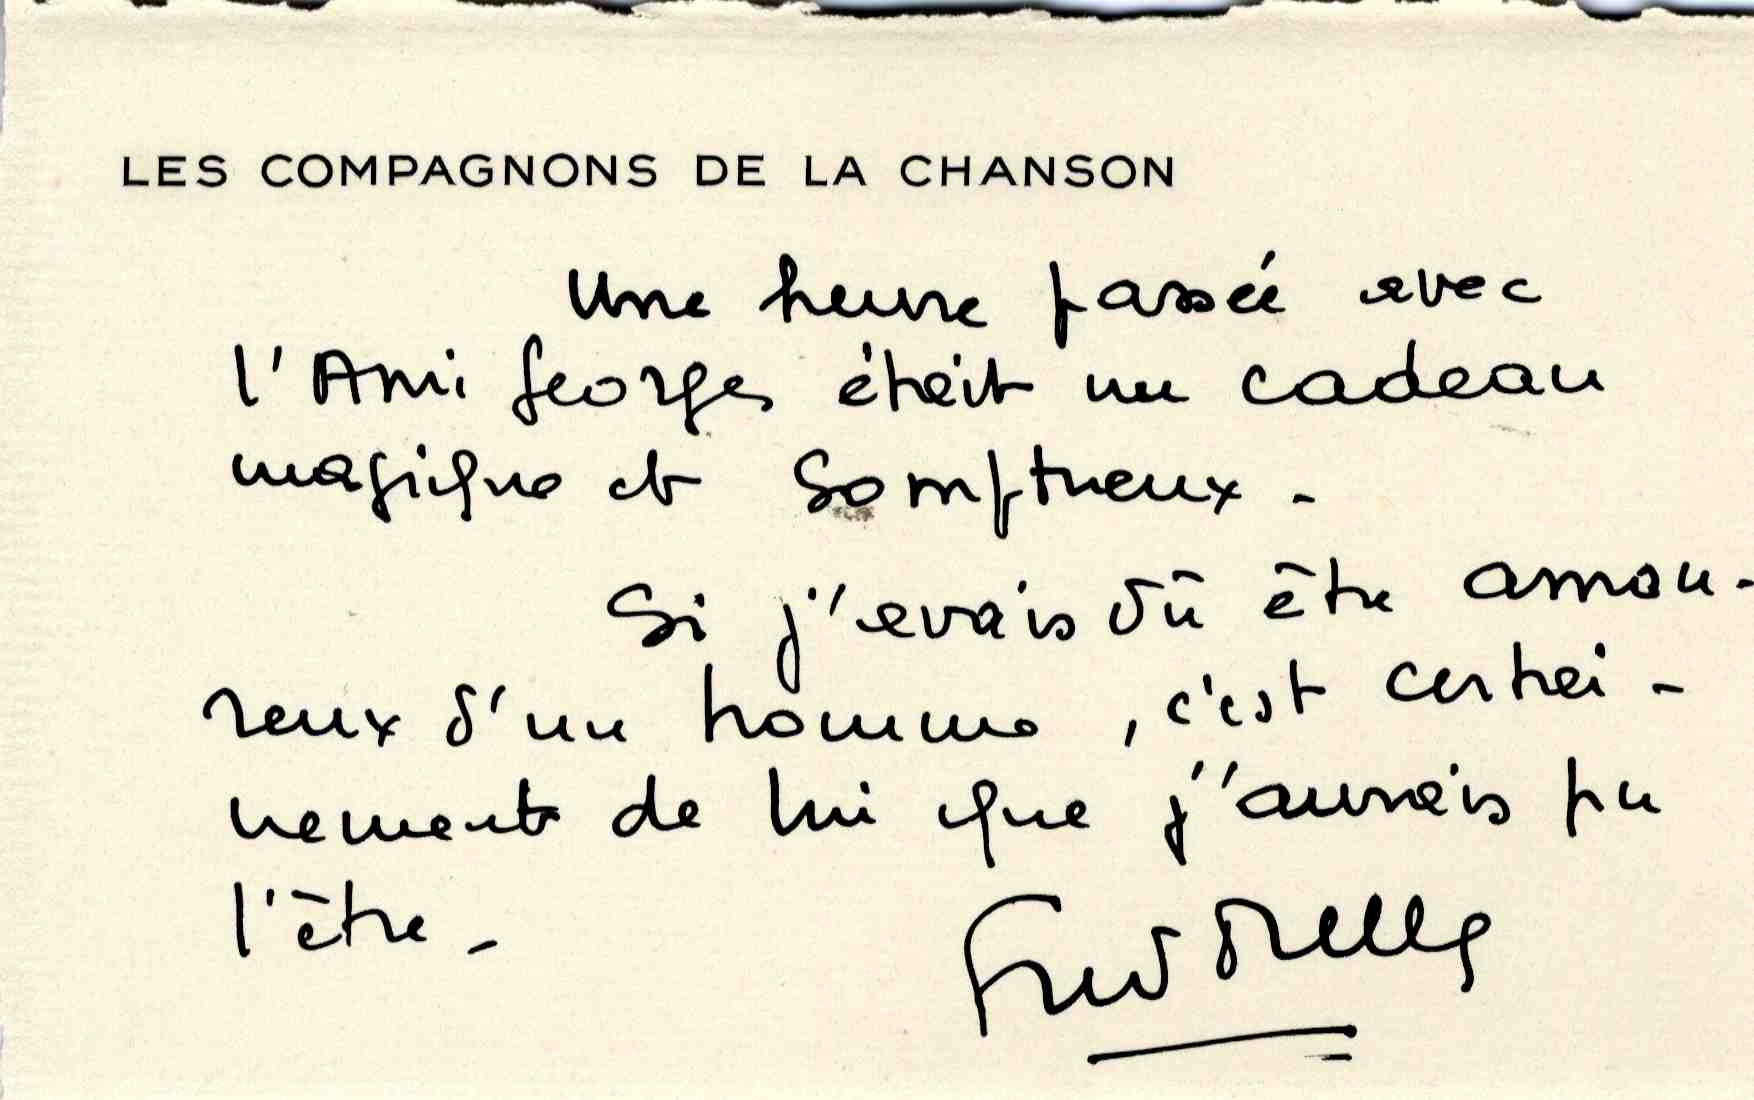 LES COMPAGNONS DE LA CHANSON
Une heure passée avec
l'Ami Georges était un cadeau
magique et somptueux -
Si j'avais dû être amou-
reux d'un homme, c'est certai-
nement de lui que j'aurais pu
l'être -
Fred Mella